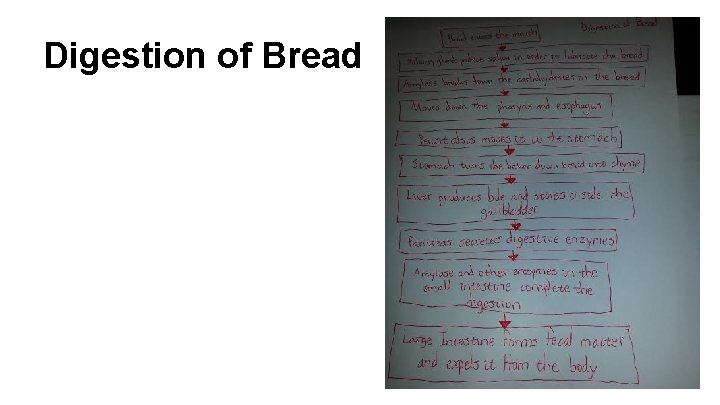 Digestion of Bread
Digestion of Bread
Bread enters the mouth
Salivary glands produce saliva in order to lubricate the bread
Amylase breaks down the carbohydrates in the bread
Moves down the pharynx and esophagus
Peristalsis moves it to the stomach
Stomach turns the broken down bread into chyme
Liver produces bile and stores inside the
gallbladder
Pancreas secretes digestive enzymes
Amylase and other enzymes in the
small intestine complete the
digestion
Large Intestine forms fecal matter
and expels it from the body